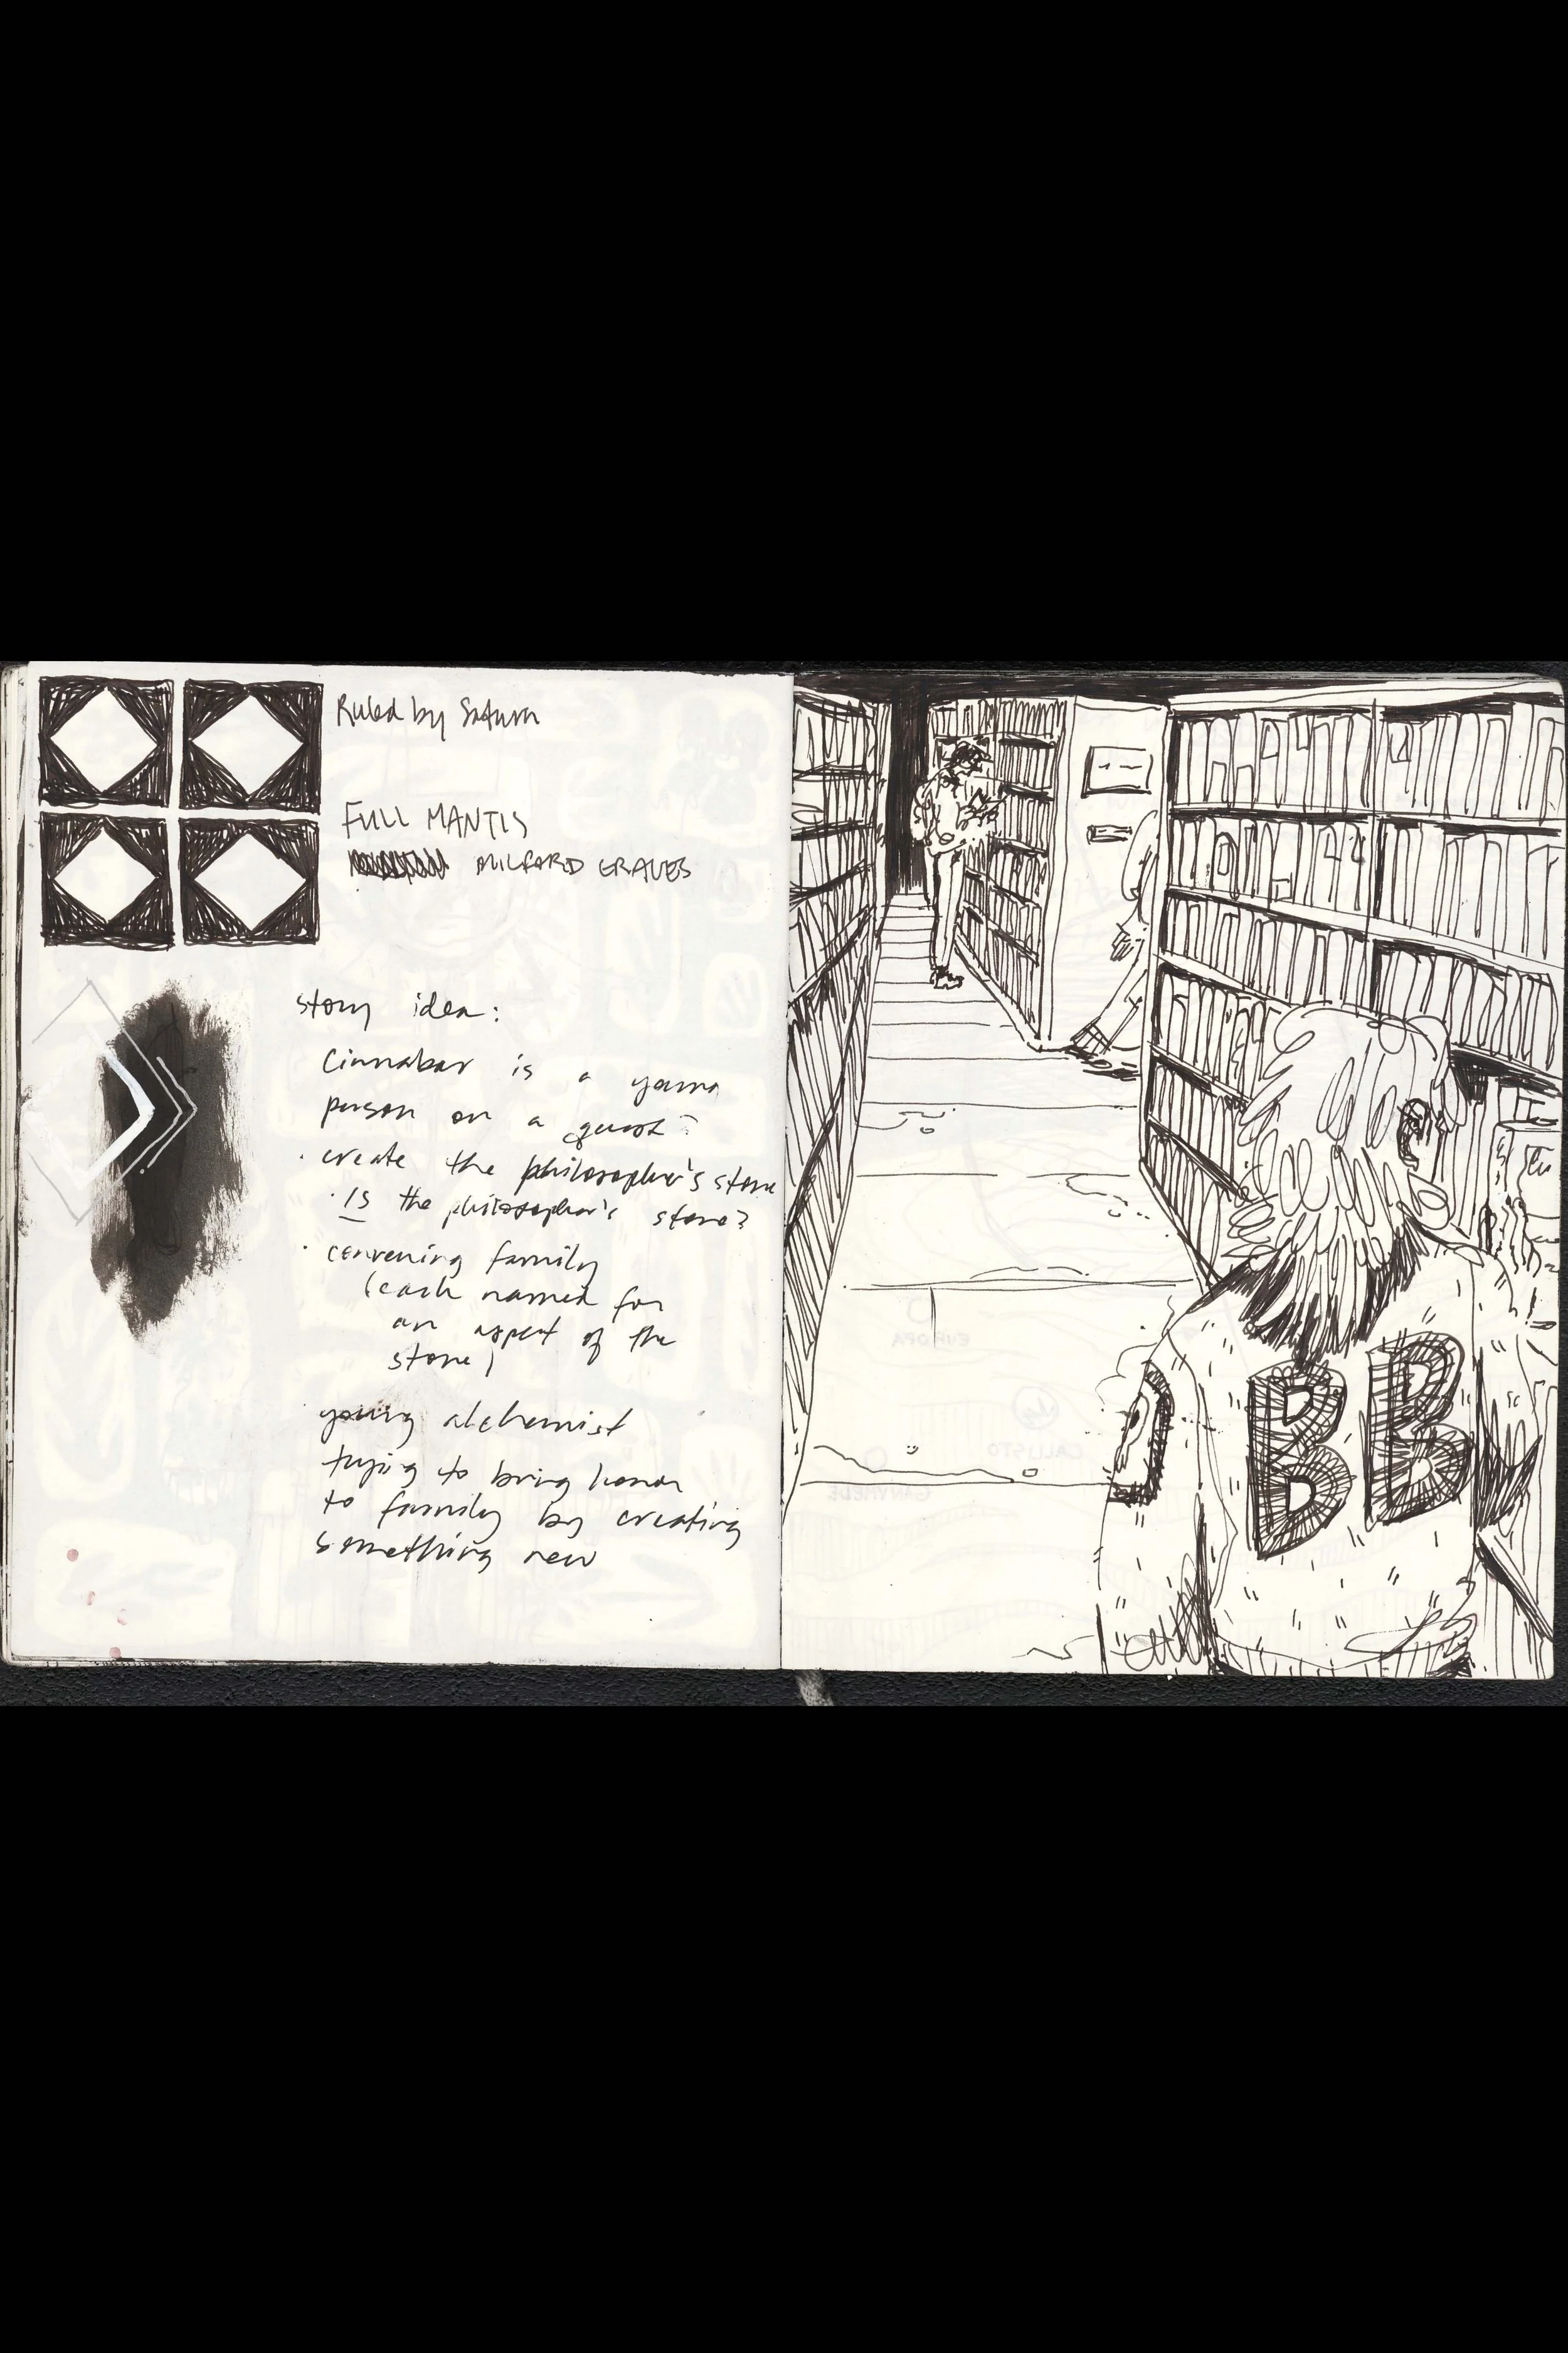 Ruled by Saturn
FULL MANTIS
MILFORD GRAVES
story idea:
Cinnabar is a young
person on a quest?
· create the philosopher's stone
· IS the philosopher's stone?
· convening family
(each named for
an aspect of the
stone)
young alchemist
trying to bring honor
to family by creating
something new
BB
EUROPA
CALLISTO
GANYMEDE